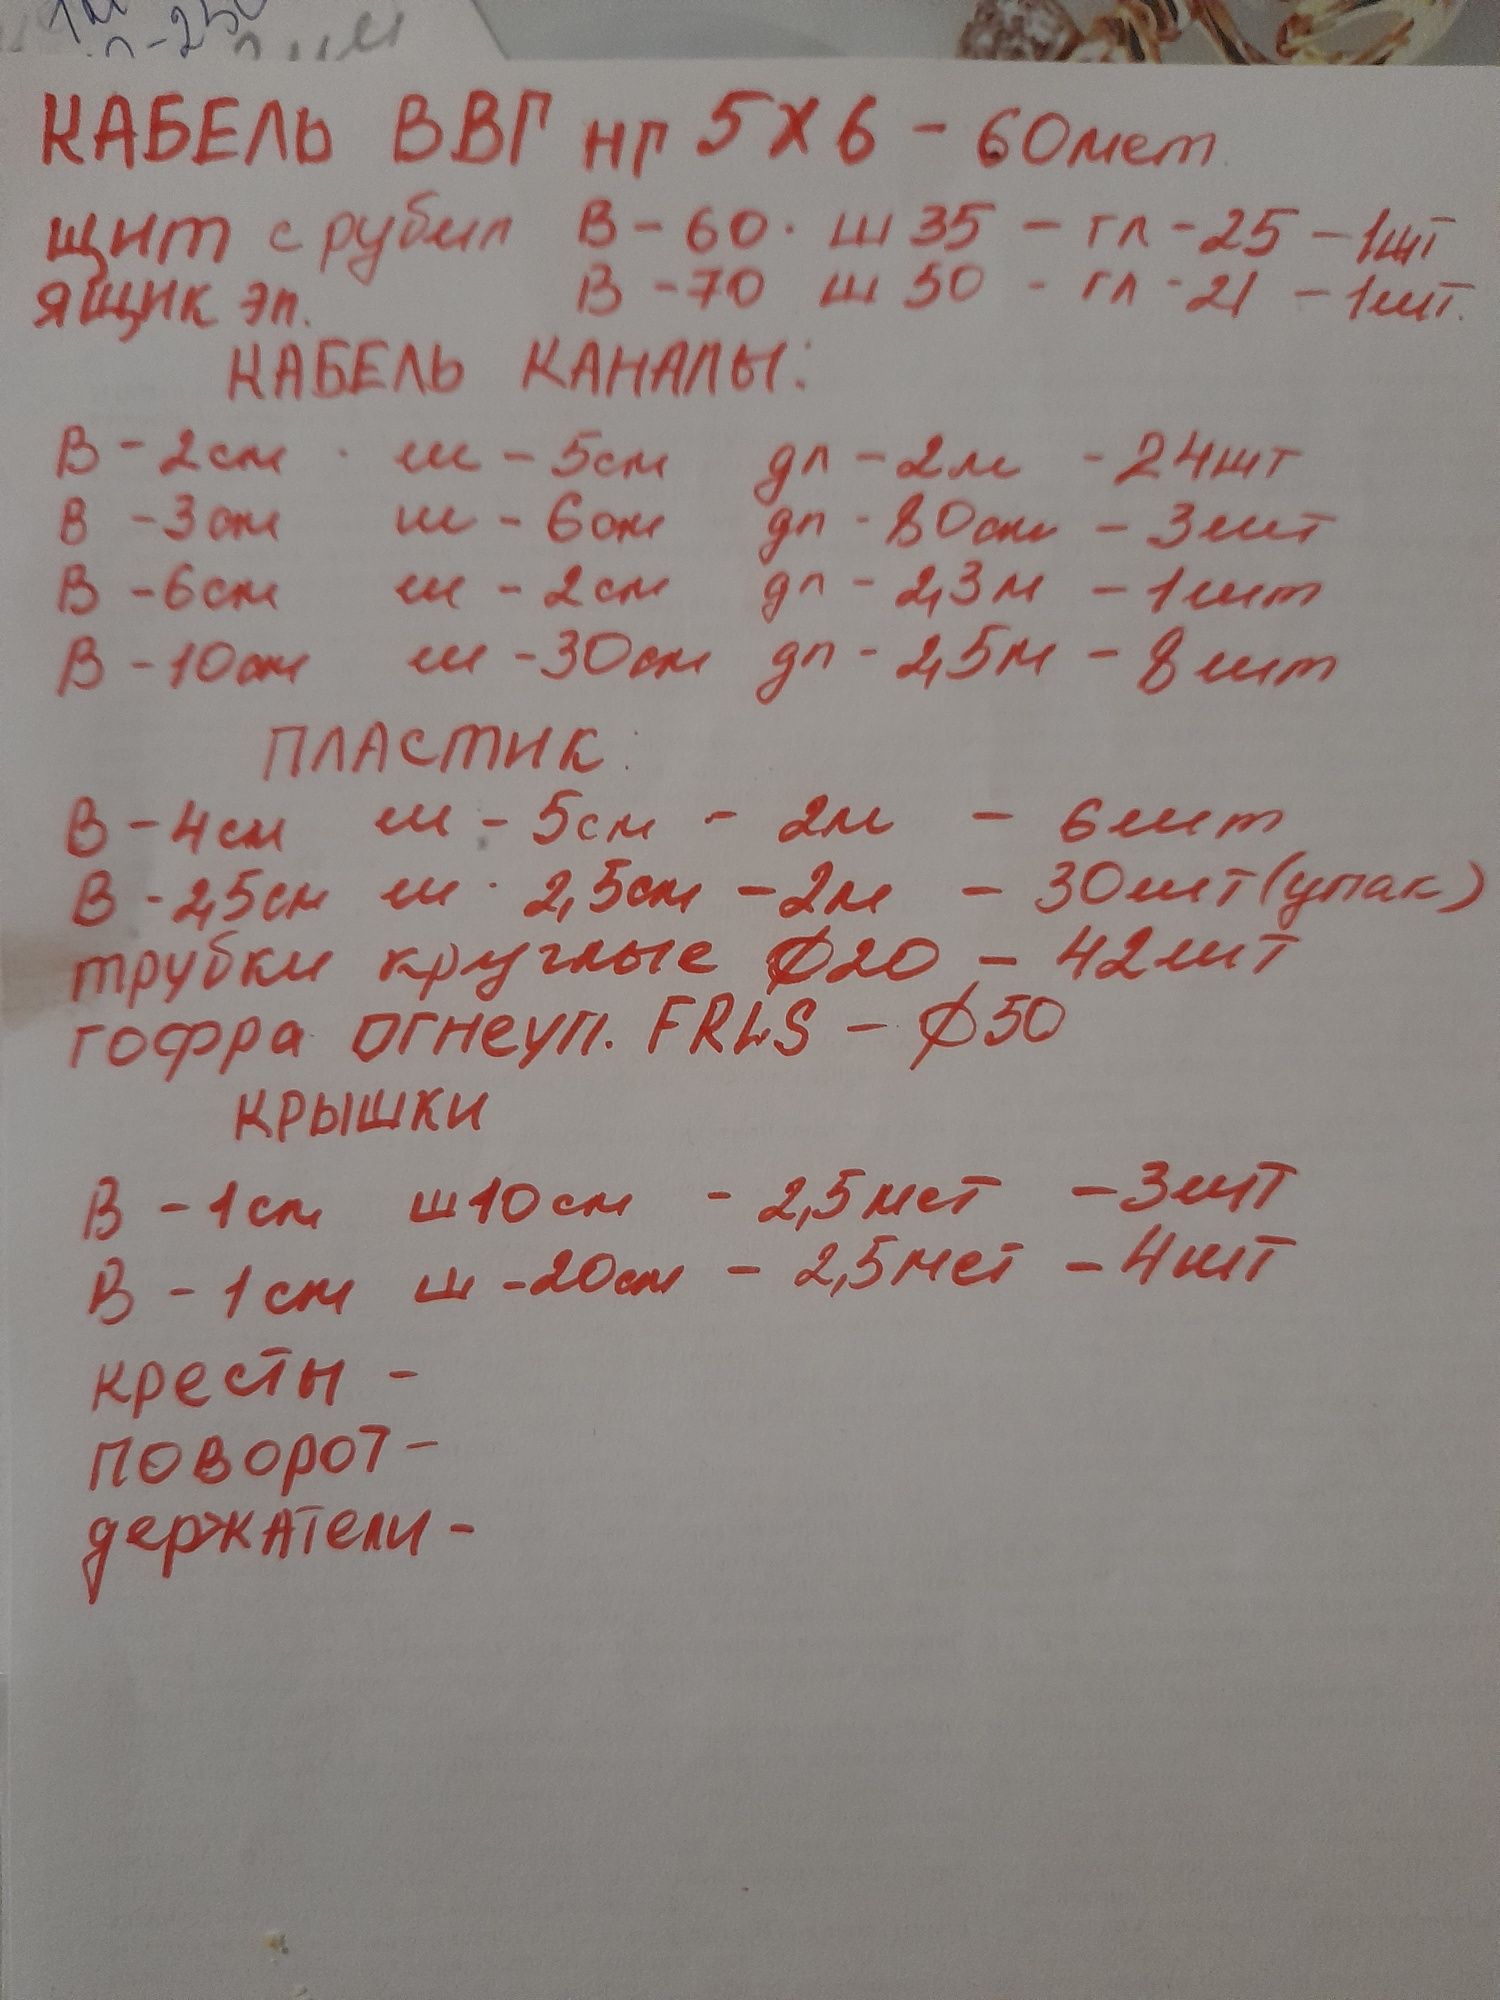 КАБЕЛЬ ВВГ нг 5Х6 - 60мет
щит с рубил В - 60. ш 35 - гл - 25 - 1шт
ящик эл. В - 70 ш 50 - гл - 21 - 1шт.
КАБЕЛЬ КАНАЛЫ:
В - 2см ш - 5см дл - 2м - 24шт
В - 3см ш - 6см дл - 80см - 3шт
В - 6см ш - 2см дл - 2,3м - 1шт
В - 10см ш - 30см дл - 2,5м - 8шт
ПЛАСТИК
В - 4см ш - 5см - 2м - 6шт
В - 2,5см ш - 2,5см - 2м - 30шт (упак)
трубки круглые ⌀20 - 42шт
гофра огнеуп. FRLS - ⌀50
КРЫШКИ
В - 1см ш 10см - 2,5мет - 3шт
В - 1см ш - 20см - 2,5мет - 4шт
кресты -
поворот -
держатели -